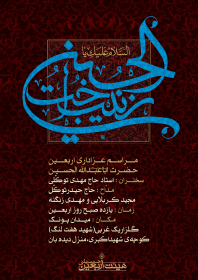 السلام علیک یا
الحسین
زینب
مراسم عزاداری اربعین
حضرت اباعبدالله الحسین
سخنران : استاد حاج مهدی توکلی
مداح : حاج حیدر توکل
مجید کربلایی و مهدی زنگنه
زمان : یازده صبح روز اربعین
مکان : میدان پونک
گلزار یک غربی (شهید هفت لنگ)
کوچه‌ی شهید اکبری، منزل دیده بان
هیئت اربعین